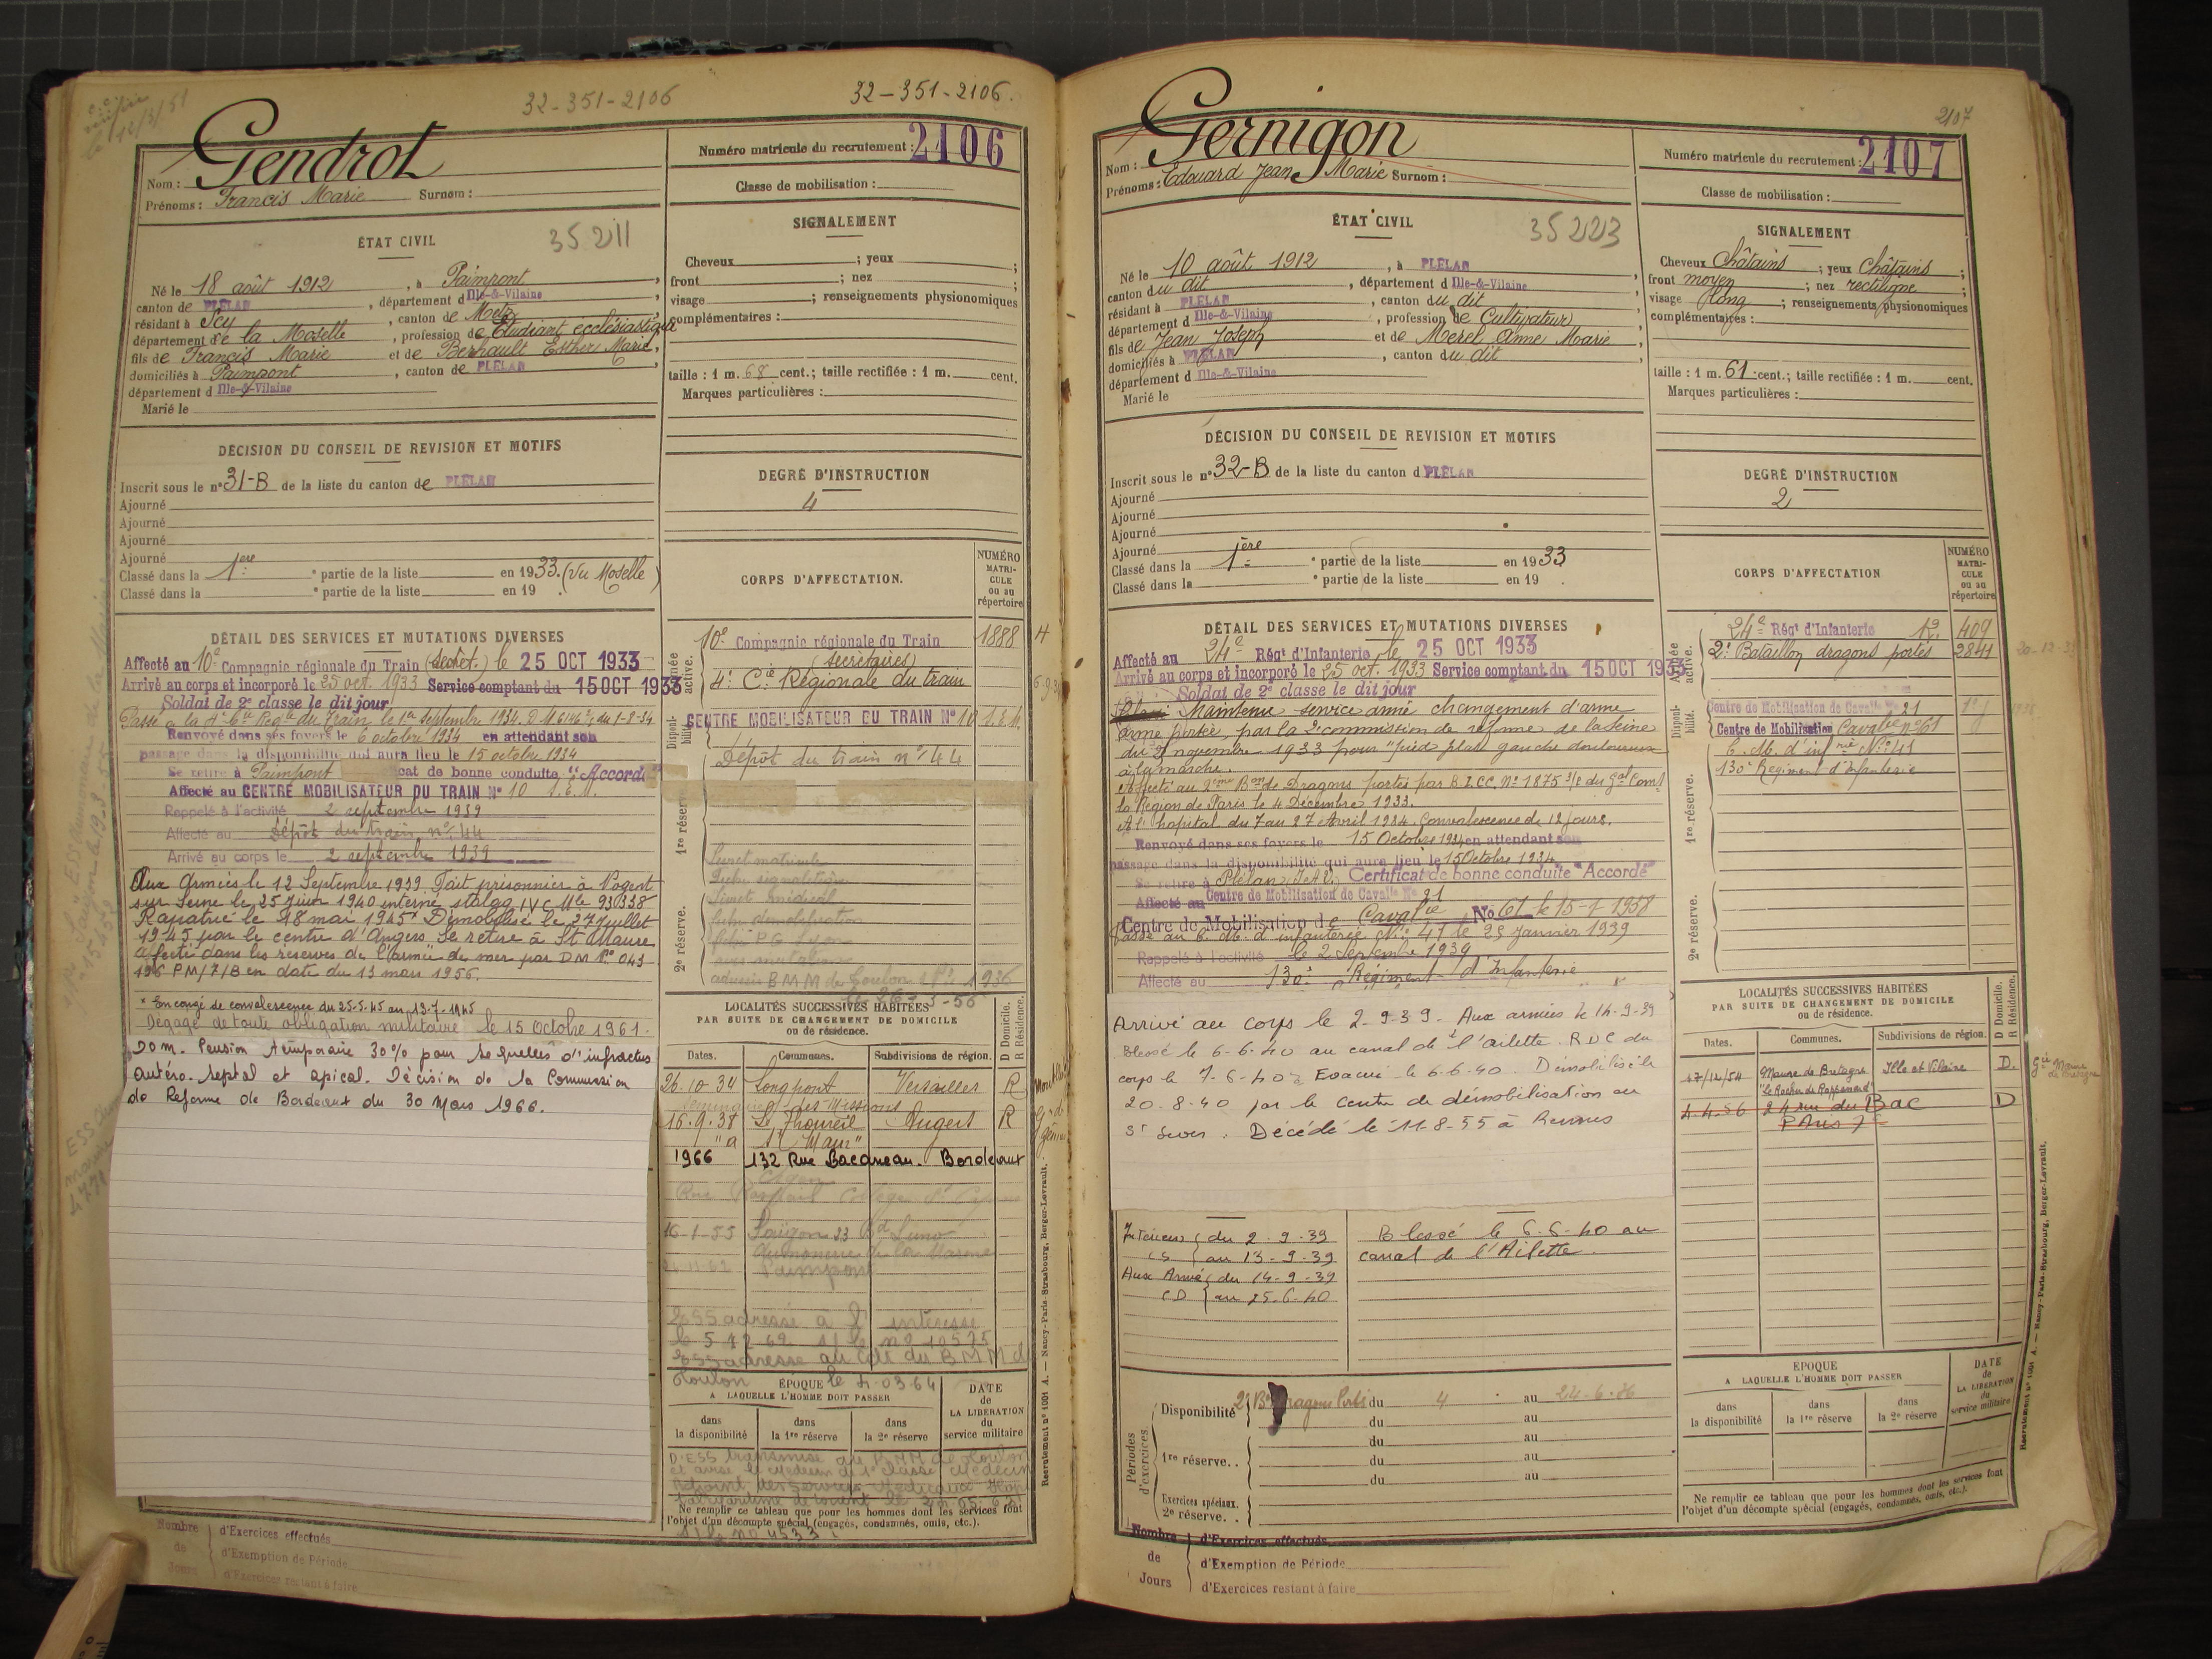 32-351-2106
32-351-2106.
Nom : Gendrot
Prénoms : Francis Marie Surnom :
Numéro matricule du recrutement : 2106
Classe de mobilisation :
ÉTAT CIVIL
35211
Né le 18 août 1912, à Paimpont,
canton de PLÉLAN, département d Ille-&-Vilaine,
résidant à Scy, canton de Metz
département de la Moselle, profession de Etudiant ecclésiastique
fils de Francis Marie et de Berhault Esther Marie,
domiciliés à Paimpont, canton de PLÉLAN
département d Ille-&-Vilaine
Marié le
SIGNALEMENT
Cheveux ; yeux ;
front ; nez ;
visage ; renseignements physionomiques
complémentaires :
taille : 1 m. 68 cent.; taille rectifiée : 1 m. cent.
Marques particulières :
DÉCISION DU CONSEIL DE REVISION ET MOTIFS
Inscrit sous le n° 31-B de la liste du canton de PLÉLAN
Ajourné
Ajourné
Ajourné
Ajourné
Classé dans la 1ère partie de la liste en 1933. (Vu Moselle)
Classé dans la partie de la liste en 19 .
DEGRÉ D'INSTRUCTION
4
CORPS D'AFFECTATION.
NUMÉRO MATRI-CULE ou au répertoire
DÉTAIL DES SERVICES ET MUTATIONS DIVERSES
Affecté au 10e Compagnie régionale du Train (Secrét.) le 25 OCT 1933
Arrivé au corps et incorporé le 25 oct. 1933 Service comptant du 15 OCT 1933
Soldat de 2e classe le dit jour
Passé à la 4e Cie Regle du Train le 1er Septembre 1934. D.M. 6146 du 1-8-34
Renvoyé dans ses foyers le 6 octobre 1934 en attendant son
passage dans la disponibilité qui aura lieu le 15 octobre 1934
Se retire à Paimpont cat de bonne conduite "Accordé"
Affecté au CENTRE MOBILISATEUR DU TRAIN N° 10
Rappelé à l'activité 2 septembre 1939
Affecté au Dépôt du train n° 44
Arrivé au corps le 2 septembre 1939
Aux Armées le 12 Septembre 1939. Fait prisonnier à Nogent
sur Seine le 25 Juin 1940 interné stalag IV C Mle 930338
Rapatrié le 18 mai 1945* Démobilisé le 27 Juillet
1945 par le centre d'Angers Se retire à St Maure
affecté dans les réserves de l'armée de mer par DM N° 043
196 PM/7/B en date du 13 mars 1956.
* En congé de convalescence du 25-5-45 au 13-7-1945
Dégagé de toute obligation militaire le 15 Octobre 1961.
Dom. Pension temporaire 30% pour séquelles d'infarctus
antéro-septal et apical. Décision de la Commission
de Réforme de Bordeaux du 30 Mars 1966.
10e Compagnie régionale du Train 1888
(secrétaires)
4e Cie Régionale du train
CENTRE MOBILISATEUR DU TRAIN N° 10
Dépôt du train n° 44
Livret matricule
Fiche signalétique
Livret médical
adressés BMM de Toulon
LOCALITÉS SUCCESSIVES HABITÉES
PAR SUITE DE CHANGEMENT DE DOMICILE
ou de résidence.
D Domicile. R Résidence.
Dates. Communes. Subdivisions de région.
26-10-34 Longpont Versailles R
16-9-38 Le Thoureil Angers R
"a St Maur"
1966 132 Rue Bacaneau. Bordeaux
16-1-55 Saïgon 23 Bd Luro
Aumônerie de la Marine
Paimpont
ESS adressé à l'intéressé
le 5 12 62 s/ le n° 10575
ESS adressé au Cdt du BMM de
Toulon le 4.03.64
ÉPOQUE
A LAQUELLE L'HOMME DOIT PASSER
dans la disponibilité dans la 1re réserve dans la 2e réserve
DATE de LA LIBÉRATION du service militaire
Ne remplir ce tableau que pour les hommes dont les services font
l'objet d'un décompte spécial (engagés, condamnés, omis, etc.).
Nombre de Jours
d'Exercices effectués
d'Exemption de Période
d'Exercices restant à faire
Recrutement n° 1001 A. — Nancy-Paris-Strasbourg, Berger-Levrault.
2107
Nom : Gernigon
Prénoms : Edouard Jean Marie Surnom :
Numéro matricule du recrutement : 2107
Classe de mobilisation :
ÉTAT CIVIL
35223
Né le 10 août 1912, à PLÉLAN
canton du dit, département d Ille-&-Vilaine
résidant à PLÉLAN, canton du dit
département d Ille-&-Vilaine, profession de Cultivateur
fils de Jean Joseph et de Merel Anne Marie
domiciliés à PLÉLAN, canton du dit
département d Ille-&-Vilaine
Marié le
SIGNALEMENT
Cheveux Châtains ; yeux Châtains ;
front moyen ; nez rectiligne ;
visage long ; renseignements physionomiques
complémentaires :
taille : 1 m. 61 cent.; taille rectifiée : 1 m. cent.
Marques particulières :
DÉCISION DU CONSEIL DE REVISION ET MOTIFS
Inscrit sous le n° 32-B de la liste du canton d PLÉLAN
Ajourné
Ajourné
Ajourné
Ajourné
Classé dans la 1ère partie de la liste en 1933
Classé dans la partie de la liste en 19 .
DEGRÉ D'INSTRUCTION
2
CORPS D'AFFECTATION
NUMÉRO MATRI-CULE ou au répertoire
DÉTAIL DES SERVICES ET MUTATIONS DIVERSES
Affecté au 24e Régt d'Infanterie, le 25 OCT 1933
Arrivé au corps et incorporé le 25 oct. 1933 Service comptant du 15 OCT 1933
Soldat de 2e classe le dit jour
Maintenu service armé changement d'arme
arme portée, par la 2e commission de réforme de la Seine
du novembre 1933 pour "pied plat gauche douloureux
à la marche.
Affecté au 2ème Bon de Dragons portés par B.I.C.C. N° 1875 du Gal Comt
la Région de Paris le 4 Décembre 1933.
A l'hopital du 7 au 27 Avril 1934. Convalescence de 12 jours.
Renvoyé dans ses foyers le 15 Octobre 1934 en attendant son
passage dans la disponibilité qui aura lieu le 15 Octobre 1934
Se retire à Plélan, I et V. Certificat de bonne conduite "Accordé"
Affecté au Centre de Mobilisation de Cavalie N° 21
Centre de Mobilisation de Cavalie No 61 le 15-1-1938
Passé au C. M. d'infanterie N° 41 le 25 Janvier 1939
Rappelé à l'activité le 2 Septembre 1939
Affecté au 130e Régiment d'Infanterie
Arrivé au corps le 2-9-39. Aux armées le 14-9-39
Blessé le 6-6-40 au canal de l'Ailette. RDC du
corps le 7-6-40. Evacué le 6-6-40. Démobilisé le
20-8-40 par le centre de démobilisation au
St Sever. Décédé le 11-8-55 à Rennes
Intérieur du 2-9-39
CS au 13-9-39
Aux Armées du 14-9-39
CD au 25-6-40
Blessé le 6-6-40 au
canal de l'Ailette
Périodes d'exercices.
Disponibilité 2e Bon Dragons Portés du 4 au 24-6-36
du au
du au
1re réserve.. du au
du au
Exercices spéciaux.
2e réserve..
Nombre de Jours
d'Exercices effectués
d'Exemption de Période
d'Exercices restant à faire
Armée active.
24e Régt d'Infanterie 409
2e Bataillon dragons portés 2841
Disponibilité.
Centre de Mobilisation de Cavalie N° 21
Centre de Mobilisation Cavalie n° 61
C. M. d'infrie N° 41
130e Régiment d'Infanterie
1re réserve.
2e réserve.
LOCALITÉS SUCCESSIVES HABITÉES
PAR SUITE DE CHANGEMENT DE DOMICILE
ou de résidence.
D Domicile. R Résidence.
Dates. Communes. Subdivisions de région.
17/12/54 Maure de Bretagne Ille et Vilaine D.
4.4.56 24 rue du Bac D
Paris 7e
ÉPOQUE
A LAQUELLE L'HOMME DOIT PASSER
dans la disponibilité dans la 1re réserve dans la 2e réserve
DATE de LA LIBÉRATION du service militaire
Ne remplir ce tableau que pour les hommes dont les services font
l'objet d'un décompte spécial (engagés, condamnés, omis, etc.).
Recrutement n° 1001 A. — Nancy-Paris-Strasbourg, Berger-Levrault.